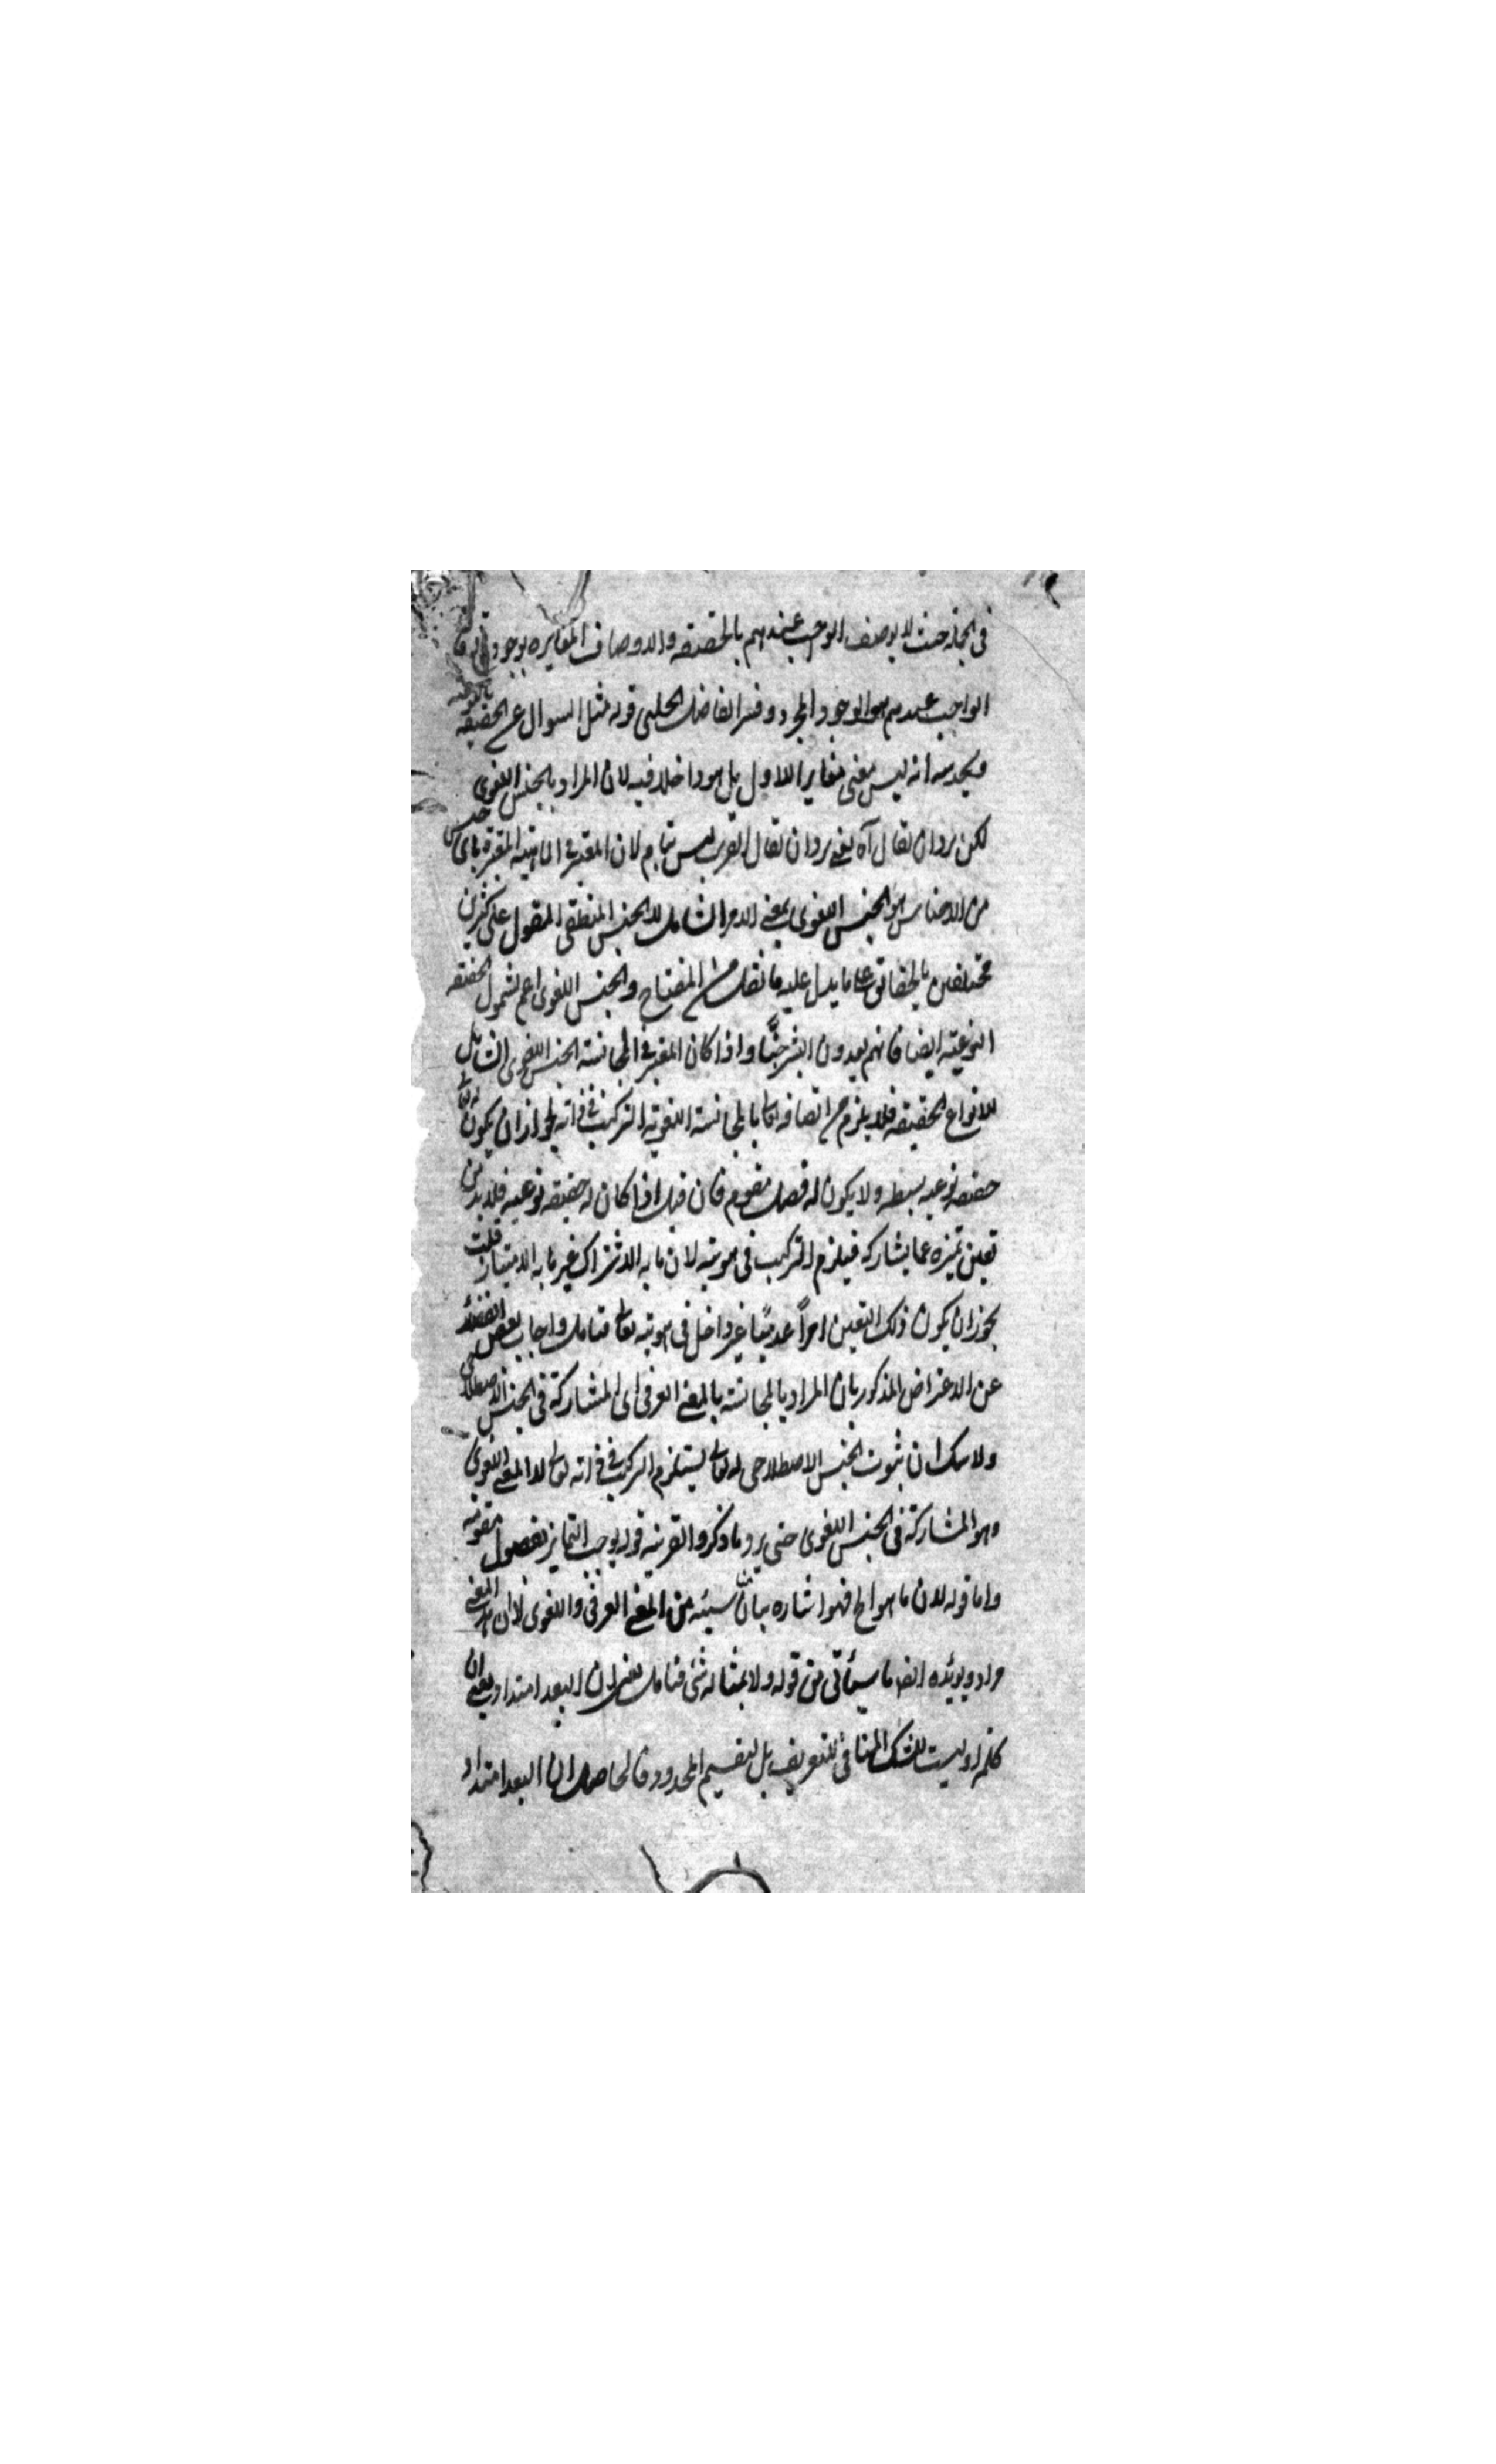 في الجملة حيث لا يوصف الواجب عندهم بالحقيقة والاوصاف المغايرة بوجود
الواجب عندهم هو الوجود المجرد وفسر الفاضل الجلبي قوله مثل السوال عن الحقيقة
ويخدشه انه ليس معنى مغايرا للاول بل هو داخلا فيه لان المراد بالجنس اللغوى
لكن يرد ان يقال آه يعنى يرد ان يقال التقريب ليس بتام لان المعتبر في الماهية المفسرة باى جنس
من الاجناس هو الجنس اللغوى بمعنى الامر الشامل لا الجنس المنطقى المقول على كثيرين
مختلفين بالحقائق على ما يدل عليه ما نقل من المفتاح والجنس اللغوى اعم لشمول الحقيقة
النوعية ايضا فانهم يعدون البشر جنسًا واذا كان المعتبر في المجانسة الجنس اللغوى الشامل
للانواع الحقيقة فلا يلزم من اتصافه تعالى بالمجانسة اللغوية التركيب في ذاته لجواز ان يكون له تعالى
حقيقة نوعية بسيطة ولا يكون له فصل مقوم فان قيل اذا كان له حقيقة نوعية فلا بد من
تعين تميزه عما يشاركه فيلزم التركيب في هويته لان ما به الاشتراك غير ما به الامتياز قلت
يجوز ان يكون ذلك التعين امراً عدميًا غير داخل في هويته تعالى فتامل واجاب بعض الفضلاء
عن الاعتراض المذكور بان المراد بالمجانسة بالمعنى العرفى اى المشاركة في الجنس الاصطلاحى
ولا شك ان ثبوت الجنس الاصطلاحى له تعالى يستلزم التركيب في ذاته تعالى لا المعنى اللغوى
وهو المشاركة في الجنس اللغوى حتى يرد ما ذكر والقرينة قوله يوجب التمايز بفصول مقومة
واما قوله لان ما هو الخ فهو اشارة بيان سيئه من المعنى العرفى واللغوى لا ان المعنى
مراد ويؤيده ايضا ما سيأتى من قوله ولا يماثله شئ فتامل يعنى ان البعد امتداد يعنى ان
كلمة او ليست للشك المنافى للتعريف بل لتقسيم المحدود فالحاصل ان البعد امتداد